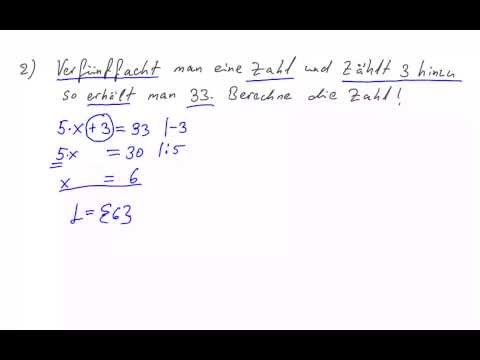 2) Verfünffacht man eine Zahl und zählt 3 hinzu
so erhält man 33. Berechne die Zahl!
5·x + 3 = 33 |-3
5·x = 30 |:5
x = 6
L = {6}